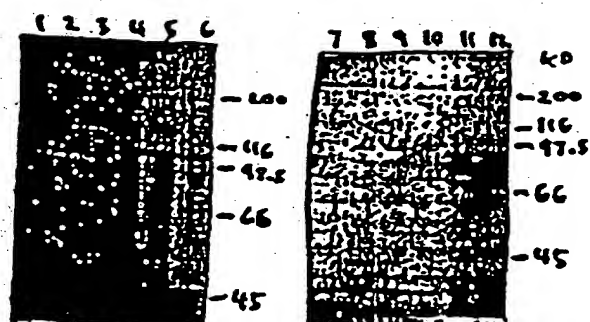 1 2 3 4 5 6
200
116
97.5
66
45
7 8 9 10 11 12
KD
200
116
97.5
66
45